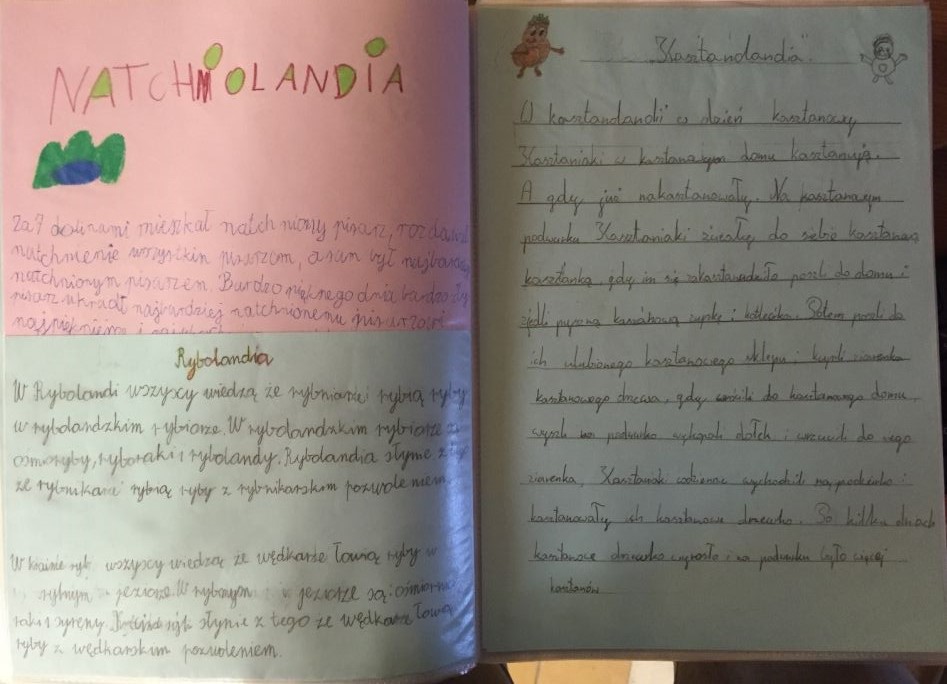 NATCHNIOLANDIA
Za 7 dolinami mieszkał natchniony pisarz, rozdawał
natchnienie wszystkim pisarzom, a sam był najbardziej
natchnionym pisarzem. Bardzo pięknego dnia bardzo zły
pisarz ukradł najbardziej natchnionemu pisarzowi
Rybolandia
W Rybolandi wszyscy wiedzą że rybniarze rybią ryby
w rybolandzkim rybiorze. W rybolandzkim rybiorze są
ośmioryby, ryboraki i rybolandy. Rybolandia słynie z
że rybnikarze rybią ryby z rybnikarskim pozwoleniem.
W krainie ryb wszyscy wiedzą że wędkarze łowią ryby w
rybnym jeziorze. W rybnym jeziorze są: ośmiornice
raki i syreny. słynie z tego że wędkarze łowią
ryby z wędkarskim pozwoleniem.
"Kasztanolandia"
W kasztanolandii w dzień kasztanowy
Kasztaniaki w kasztanowym domu kasztanują.
A gdy już nakasztanowały. Na kasztanowym
podwórku Kasztaniaki do siebie kasztanową
gdy im się poszli do domu i
zjedli pyszną zupkę i kotlecika. Potem poszli do
ich ulubionego kasztanowego sklepu i kupili ziarenka
kasztanowego drzewa, gdy wrócili do kasztanowego domu,
wyszli na podwórko wykopali dołek i wrzucili do niego
ziarenka. Kasztaniaki codziennie wychodzili na podwórko i
kasztanowały ich kasztanowe drzewko. Po kilku dniach
kasztanowe drzewko wyrosło i na podwórku było więcej
kasztanów